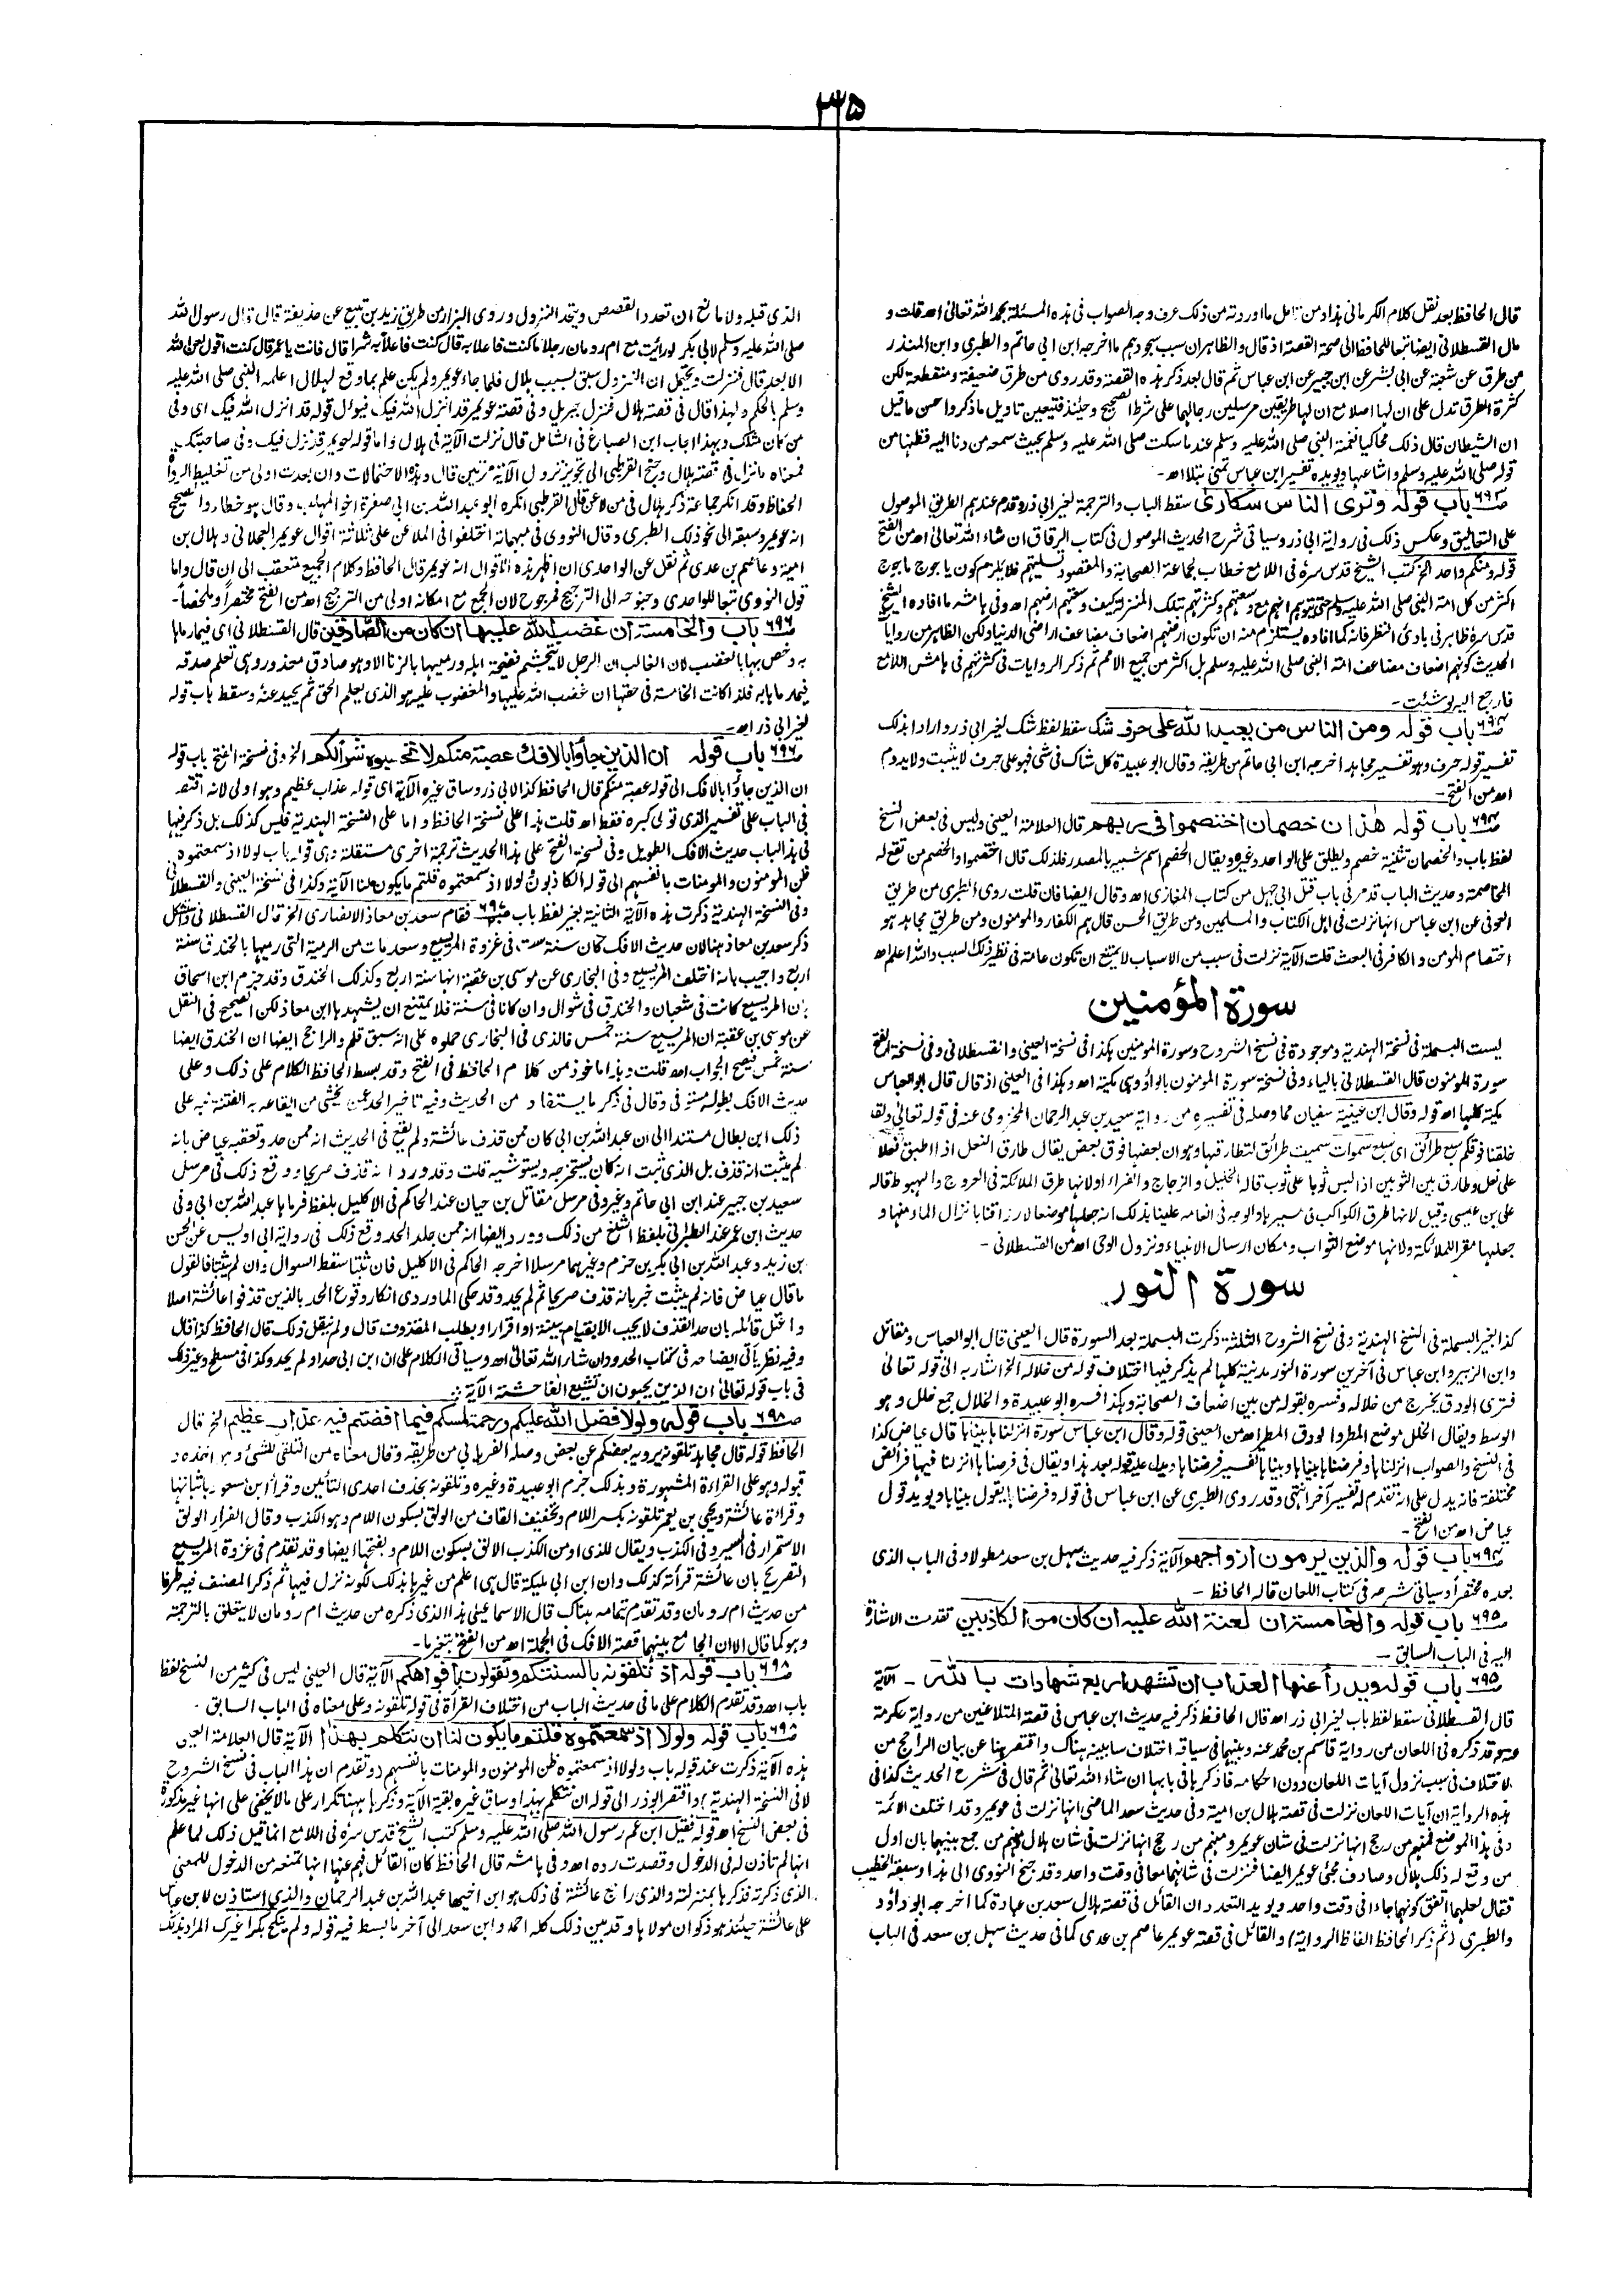 ٣٥
قال الحافظ بعد نقل كلام الكرماني هذا ومن تأمل ما اوردته من ذلك عرف وجه الصواب في هذه المسئلة بحمد الله تعالى اه قلت و
مال القسطلاني ايضا تبعا للحافظ الى صحة القصة اذ قال والظاهر ان سبب سجودهم ما اخرجه ابن ابي حاتم والطبري وابن المنذر
من طرق عن شعبة عن ابي بشر عن ابن جبير عن ابن عباس ثم قال بعد ذكر هذه القصة وقد روى من طرق ضعيفة ومنقطعة لكن
كثرة الطرق تدل على ان لها اصلا مع ان لها طريقين مرسلين رجالهما على شرط الصحيح وحينئذ فتيعين تاويل ما ذكروا احسن ما قيل
ان الشيطان قال ذلك محاكيا نغمة النبي صلى الله عليه وسلم عند ما سكت صلى الله عليه وسلم بحيث سمعه من دنا اليه فظنها من
قوله صلى الله عليه وسلم واشاعها ويويده تفسير ابن عباس تمنى بتلا اه -
باب قوله وترى الناس سكارى سقط الباب والترجمة لغير ابي ذر وقدم عندهم الطريق الموصول
على التعاليق وعكس ذلك في رواية ابي ذر وسياتي شرح الحديث الموصول في كتاب الرقاق ان شاء الله تعالى اه من الفتح
قوله ومنكم واحد الخ كتب الشيخ قدس سره في اللامع خطاب لجماعة الصحابة والمقصود تسليتهم فلا يلزم كون ياجوج ماجوج
اكثر من كل امة النبي صلى الله عليه وسلم حتى يتوهم انهم مع وسعتهم وكثرتهم تلك المنزلة كيف وسعتهم ارضهم اه وفي هامشه ما افاده الشيخ
قدس سره ظاهر في بادئ النظر فانه كما افاده يستلزم منه ان تكون ارضهم اضعاف مضاعف اراضي الدنيا ولكن الظاهر من روايات
الحديث كونهم اضعاف مضاعف امة النبي صلى الله عليه وسلم بل اكثر من جميع الامم ثم ذكر الروايات في كثرتهم في هامش اللامع
فارجع اليه لو شئت -
باب قوله ومن الناس من يعبد الله على حرف شك سقط لفظ شك لغير ابي ذر واراد بذلك
تفسير قوله حرف وهو تفسير مجاهد اخرجه ابن ابي حاتم من طريقه وقال ابو عبيدة كل شاك في شئ فهو على حرف لا يثبت ولا يدوم
اه من الفتح -
باب قوله هذان خصمان اختصموا في ربهم قال العلامة العيني وليس في بعض النسخ
لفظ باب والخصمان تثنية خصم ويطلق على الواحد وغيره ويقال الخصم اسم شبيه بالمصدر فلذلك قال اختصموا والخصم من تقع له
المخاصمة وحديث الباب قد مر في باب قتل ابي جهل من كتاب المغازي اه وقال ايضا فان قلت روى الطبري من طريق
العوفي عن ابن عباس انها نزلت في اهل الكتاب والمسلمين ومن طريق الحسن قال هم الكفار والمومنون ومن طريق مجاهد هو
اختصام المومن والكافر في البعث قلت الآية نزلت في سبب من الاسباب لا يمتنع ان تكون عامة في نظير ذلك السبب والله اعلم اه
سورة المؤمنين
ليست البسملة في نسخة الهندية وموجودة في نسخ الشروح وسورة المومنين هكذا في نسخة العيني والقسطلاني وفي نسخة الفتح
سورة المومنون قال القسطلاني بالياء وفي نسخة سورة المومنون بالواو وهي مكية اه وهكذا في العيني اذ قال قال ابو العباس
مكية كلها اه قوله وقال ابن عيينة سفيان مما وصله في تفسيره من رواية سعيد بن عبد الرحمان المخزومي عنه في قوله تعالى ولقد
خلقنا فوقكم سبع طرائق اي سبع سموات سميت طرائق لتطارقها وهو ان بعضها فوق بعض يقال طارق النعل اذا اطبق نعلا
على نعل وطارق بين الثوبين اذا لبس ثوبا على ثوب قاله الخليل والزجاج والفراء اولانها طرق الملائكة في العروج والهبوط قاله
علي بن عيسى وقيل لانها طرق الكواكب في مسيرها والوجه في انعامه علينا بذلك انه جعلها موضعا لارزاقنا بانزال الماء منها و
جعلها مقرا للملائكة ولانها موضع الثواب ومكان ارسال الانبياء ونزول الوحي اه من القسطلاني -
سورة النور
كذا بغير البسملة في النسخ الهندية وفي نسخ الشروح الثلثة ذكرت البسملة بعد السورة قال العيني قال ابو العباس ومقاتل
وابن الزبير وابن عباس في آخرين سورة النور مدنية كلها لم يذكر فيها اختلاف قوله من خلاله الخ اشار به الى قوله تعالى
فترى الودق يخرج من خلاله وفسره بقوله من بين اضعاف السحاب وهكذا فسره ابو عبيدة والخلال جمع خلل وهو
الوسط ويقال الخلل موضع المطر والودق المطر اه من العيني قوله وقال ابن عباس سورة انزلناها بيناها قال عياض كذا
في النسخ والصواب انزلناها وفرضناها بيناها وبيناها تفسير فرضناها ويدل عليه قوله بعد هذا ويقال في فرضناها انزلنا فيها فرائض
مختلفة فانه يدل على انه تقدم له تفسير آخر انتهى وقد روى الطبري عن ابن عباس في قوله وفرضناها يقول بيناها ويويد قول
عياض اه من الفتح -
باب قوله والذين يرمون ازواجهم الآية ذكر فيه حديث سهل بن سعد مطولا وفي الباب الذي
بعده مختصرا وسياتي شرحه في كتاب اللعان قاله الحافظ -
٦٩٥ باب قوله والخامسة ان لعنة الله عليه ان كان من الكاذبين تقدمت الاشارة
اليه في الباب السابق -
٦٩٥ باب قوله ويدرأ عنها العذاب ان تشهد اربع شهادات بالله - الآية
قال القسطلاني سقط لفظ باب لغير ابي ذر اه قال الحافظ ذكر فيه حديث ابن عباس في قصة المتلاعنين من رواية عكرمة
عنه وقد ذكره في اللعان من رواية قاسم بن محمد عنه وبينهما في سياقه اختلاف سابينه هناك واقتصر هنا عن بيان الراجح من
الاختلاف في سبب نزول آيات اللعان دون احكامه فاذكرها في بابها ان شاء الله تعالى ثم قال في شرح الحديث كذا في
هذه الرواية ان آيات اللعان نزلت في قصة هلال بن امية وفي حديث سعد الماضي انها نزلت في عويمر وقد اختلف الائمة
في هذا الموضع فمنهم من رجح انها نزلت في شان عويمر ومنهم من رجح انها نزلت في شان هلال ومنهم من جمع بينهما بان اول
من وقع له ذلك هلال وصادف مجئ عويمر ايضا فنزلت في شانهما معا في وقت واحد وقد جنح النووي الى هذا وسبقه الخطيب
فقال لعلهما اتفق كونهما جاءا في وقت واحد ويويد التعدد ان القائل في قصة هلال سعد بن عبادة كما اخرجه ابو داؤد
والطبري (ثم ذكر الحافظ الفاظ الرواية) والقائل في قصة عويمر عاصم بن عدي كما في حديث سهل بن سعد في الباب
الذي قبله ولا مانع ان تعدد القصص ويتحد النزول وروى البزار من طريق زيد بن تبيع عن حذيفة قال قال رسول الله
صلى الله عليه وسلم لابي بكر لو رأيت مع ام رومان رجلا ما كنت فاعلا به قال كنت فاعلا به شرا قال فانت يا عمر قال كنت اقول لعن الله
الابعد قال فنزلت ويحتمل ان النزول سبق بسبب هلال فلما جاء عويمر ولم يكن علم بما وقع لهلال اعلمه النبي صلى الله عليه
وسلم بالحكم ولهذا قال في قصة هلال فنزل جبريل وفي قصة عويمر قد انزل الله فيك فيؤل قوله قد انزل الله فيك اي وفي
من كان مثلك وبهذا اجاب ابن الصباغ في الشامل قال نزلت الآية في هلال واما قوله لعويمر قد نزل فيك وفي صاحبتك
فمعناه ما نزل في قصة هلال وجنح القرطبي الى تجويز نزول الآية مرتين قال وهذه الاحتمالات وان بعدت اولى من تغليط الرواة
الحفاظ وقد انكر جماعة ذكر هلال في من لاعن قال القرطبي انكره ابو عبد الله بن ابي صفرة اخو المهلب وقال هو خطأ والصحيح
انه عويمر وسبقه الى نحو ذلك الطبري وقال النووي في مبهماته اختلفوا في الملاعن على ثلاثة اقوال عويمر العجلاني وهلال بن
امية وعاصم بن عدي ثم نقل عن الواحدي ان اظهر هذه الاقوال انه عويمر قال الحافظ وكلام الجميع متعقب الى ان قال واما
قول النووي تبعا للواحدي وجنوحه الى الترجيح فمرجوح لان الجمع مع امكانه اولى من الترجيح اه من الفتح مختصراً وملخصاً -
٦٩٦ باب والخامسة ان غضب الله عليها ان كان من الصادقين قال القسطلاني اي فيما رماها
به وخص بها بالغضب لان الغالب ان الرجل لا يتجشم فضيحة اهله ورميها بالزنا الا وهو صادق معذور وهي تعلم صدقه
فيما رماها به فلذا كانت الخامسة في حقها ان غضب الله عليها والمغضوب عليه هو الذي يعلم الحق ثم يحيد عنه وسقط باب قوله
لغير ابي ذر اه -
٦٩٦ باب قوله ان الذين جاؤا بالافك عصبة منكم لا تحسبوه شرا لكم الخ وفي نسخة الفتح باب قوله
ان الذين جاؤا بالافك الى قوله عصبة منكم قال الحافظ كذا لابي ذر وساق غيره الآية اي قوله عذاب عظيم وهو اولى لانه اقتصر
في الباب على تفسير الذي تولى كبره فقط اه قلت هذا على نسخة الحافظ واما على النسخة الهندية فليس كذلك بل ذكر فيها
في هذا الباب حديث الافك الطويل وفي نسخة الفتح على هذا الحديث ترجمة اخرى مستقلة وهي قوله باب لولا اذ سمعتموه
ظن المومنون والمومنات بانفسهم الى قوله الكاذبون ولولا اذ سمعتموه قلتم ما يكون لنا الآية وكذا في نسخة العيني والقسطلاني
وفي النسخة الهندية ذكرت هذه الآية الثانية بغير لفظ باب فقام سعد بن معاذ الانصاري الخ قال القسطلاني واستشكل
ذكر سعد بن معاذ هنا لان حديث الافك كان سنة ست في غزوة المريسيع وسعد مات من الرمية التي رميها بالخندق سنة
اربع واجيب بانه اختلف المريسيع وفي البخاري عن موسى بن عقبة انها سنة اربع وكذلك الخندق وقد جزم ابن اسحاق
بان المريسيع كانت في شعبان والخندق في شوال وان كانا في سنة فلا يمتنع ان يشهدها ابن معاذ لكن الصحيح في النقل
عن موسى بن عقبة ان المريسيع سنة خمس فالذي في البخاري حملوه على انه سبق قلم والراجح ايضا ان الخندق ايضا
سنة خمس فيصح الجواب اه قلت وهذا ماخوذ من كلام الحافظ في الفتح وقد بسط الحافظ الكلام على ذلك وعلى
حديث الافك بطوله مستوفى وقال في ذكر ما يستفاد من الحديث وفيه تاخير الحد عمن يخشى من ايقاعه به الفتنة نبه على
ذلك ابن بطال مستندا الى ان عبد الله بن ابي كان ممن قذف عائشة ولم يقع في الحديث انه ممن حد وتعقبه عياض بانه
لم يثبت انه قذف بل الذي ثبت انه كان يستخرجه ويستوشيه قلت وقد ورد انه قذف صريحا ووقع ذلك في مرسل
سعيد بن جبير عند ابن ابي حاتم وغيره وفي مرسل مقاتل بن حيان عند الحاكم في الاكليل بلفظ فرماها عبد الله بن ابي وفي
حديث ابن عمر عند الطبراني بلفظ اشنع من ذلك وورد ايضا انه ممن جلد الحد وقع ذلك في رواية ابي اويس عن الحسن
بن زيد وعبد الله بن ابي بكر بن حزم وغيرهما مرسلا اخرجه الحاكم في الاكليل فان ثبتا سقط السوال وان لم يثبتا فالقول
ما قال عياض فانه لم يثبت خبر بانه قذف صريحا ثم لم يحد وقد حكى الماوردي انكار وقوع الحد بالذين قذفوا عائشة اصلا
واعتل قائله بان حد القذف لا يجب الا بقيام بينة او اقرار او بطلب المقذوف قال ولم ينقل ذلك قال الحافظ كذا قال
وفيه نظر ياتي ايضاحه في كتاب الحدود ان شاء الله تعالى اه وسياتي الكلام على ان ابن ابي حد او لم يحد وكذا في مسطح وغير ذلك
في باب قوله تعالى ان الذين يحبون ان تشيع الفاحشة الآية
٦٩٨ باب قوله ولولا فضل الله عليكم ورحمته لمسكم فيما افضتم فيه عذاب عظيم الخ قال
الحافظ قوله قال مجاهد تلقونه يرويه بعضكم عن بعض وصله الفريابي من طريقه وقال معناه من التلقي للشئ وهو اخذه و
قبوله وهو على القراءة المشهورة وبذلك جزم ابو عبيدة وغيره وتلقونه بحذف احدى التائين وقرأ ابن مسعود باثباتها
وقراءة عائشة ويحيى بن يعمر تلقونه بكسر اللام وتخفيف القاف من الولق بسكون اللام وهو الكذب وقال الفراء الولق
الاستمرار في السير وفي الكذب ويقال للذي ادمن الكذب الالق بسكون اللام وبفتحها ايضا وقد تقدم في غزوة المريسيع
التصريح بان عائشة قرأته كذلك وان ابن ابي مليكة قال هي اعلم من غيرها بذلك لكونه نزل فيها ثم ذكر المصنف فيه طرفا
من حديث ام رومان وقد تقدم بتمامه هناك قال الاسماعيلي هذا الذي ذكره من حديث ام رومان لا يتعلق بالترجمة
وهو كما قال الا ان الجامع بينهما قصة الافك في الجملة اه من الفتح بتغير ما -
٦٩٨ باب قوله اذ تلقونه بالسنتكم وتقولون بافواهكم الآية قال العيني ليس في كثير من النسخ لفظ
باب اه وقد تقدم الكلام على ما في حديث الباب من اختلاف القرأة في قوله تلقونه وعلى معناه في الباب السابق -
٦٩٨ باب قوله ولولا اذ سمعتموه قلتم ما يكون لنا ان نتكلم بهذا الآية قال العلامة العيني
هذه الآية ذكرت عند قوله باب ولولا اذ سمعتموه ظن المومنون والمومنات بانفسهم وتقدم ان هذا الباب في نسخ الشروح
لا في النسخة الهندية واقتصر ابو ذر الى قوله ان نتكلم بهذا وساق غيره بقية الآية وذكرها ههنا تكرار على ما لا يخفى على انها غير مذكورة
في بعض النسخ اه قوله فقيل ابن عم رسول الله صلى الله عليه وسلم كتب الشيخ قدس سره في اللامع انما قيل ذلك لما علم
انها لم تاذن له في الدخول وقصدت رده اه وفي هامشه قال الحافظ كان القائل فهم عنها انها تمنعه من الدخول للمعنى
الذي ذكرته فذكرها بمنزلته والذي راجع عائشة في ذلك هو ابن اخيها عبد الله بن عبد الرحمان والذي استاذن لابن عباس
على عائشة حينئذ هو ذكوان مولاها وقد بين ذلك كله احمد وابن سعد الى آخر ما بسط فيه قوله ولم ينكح بكرا غيرك المراد بذلك